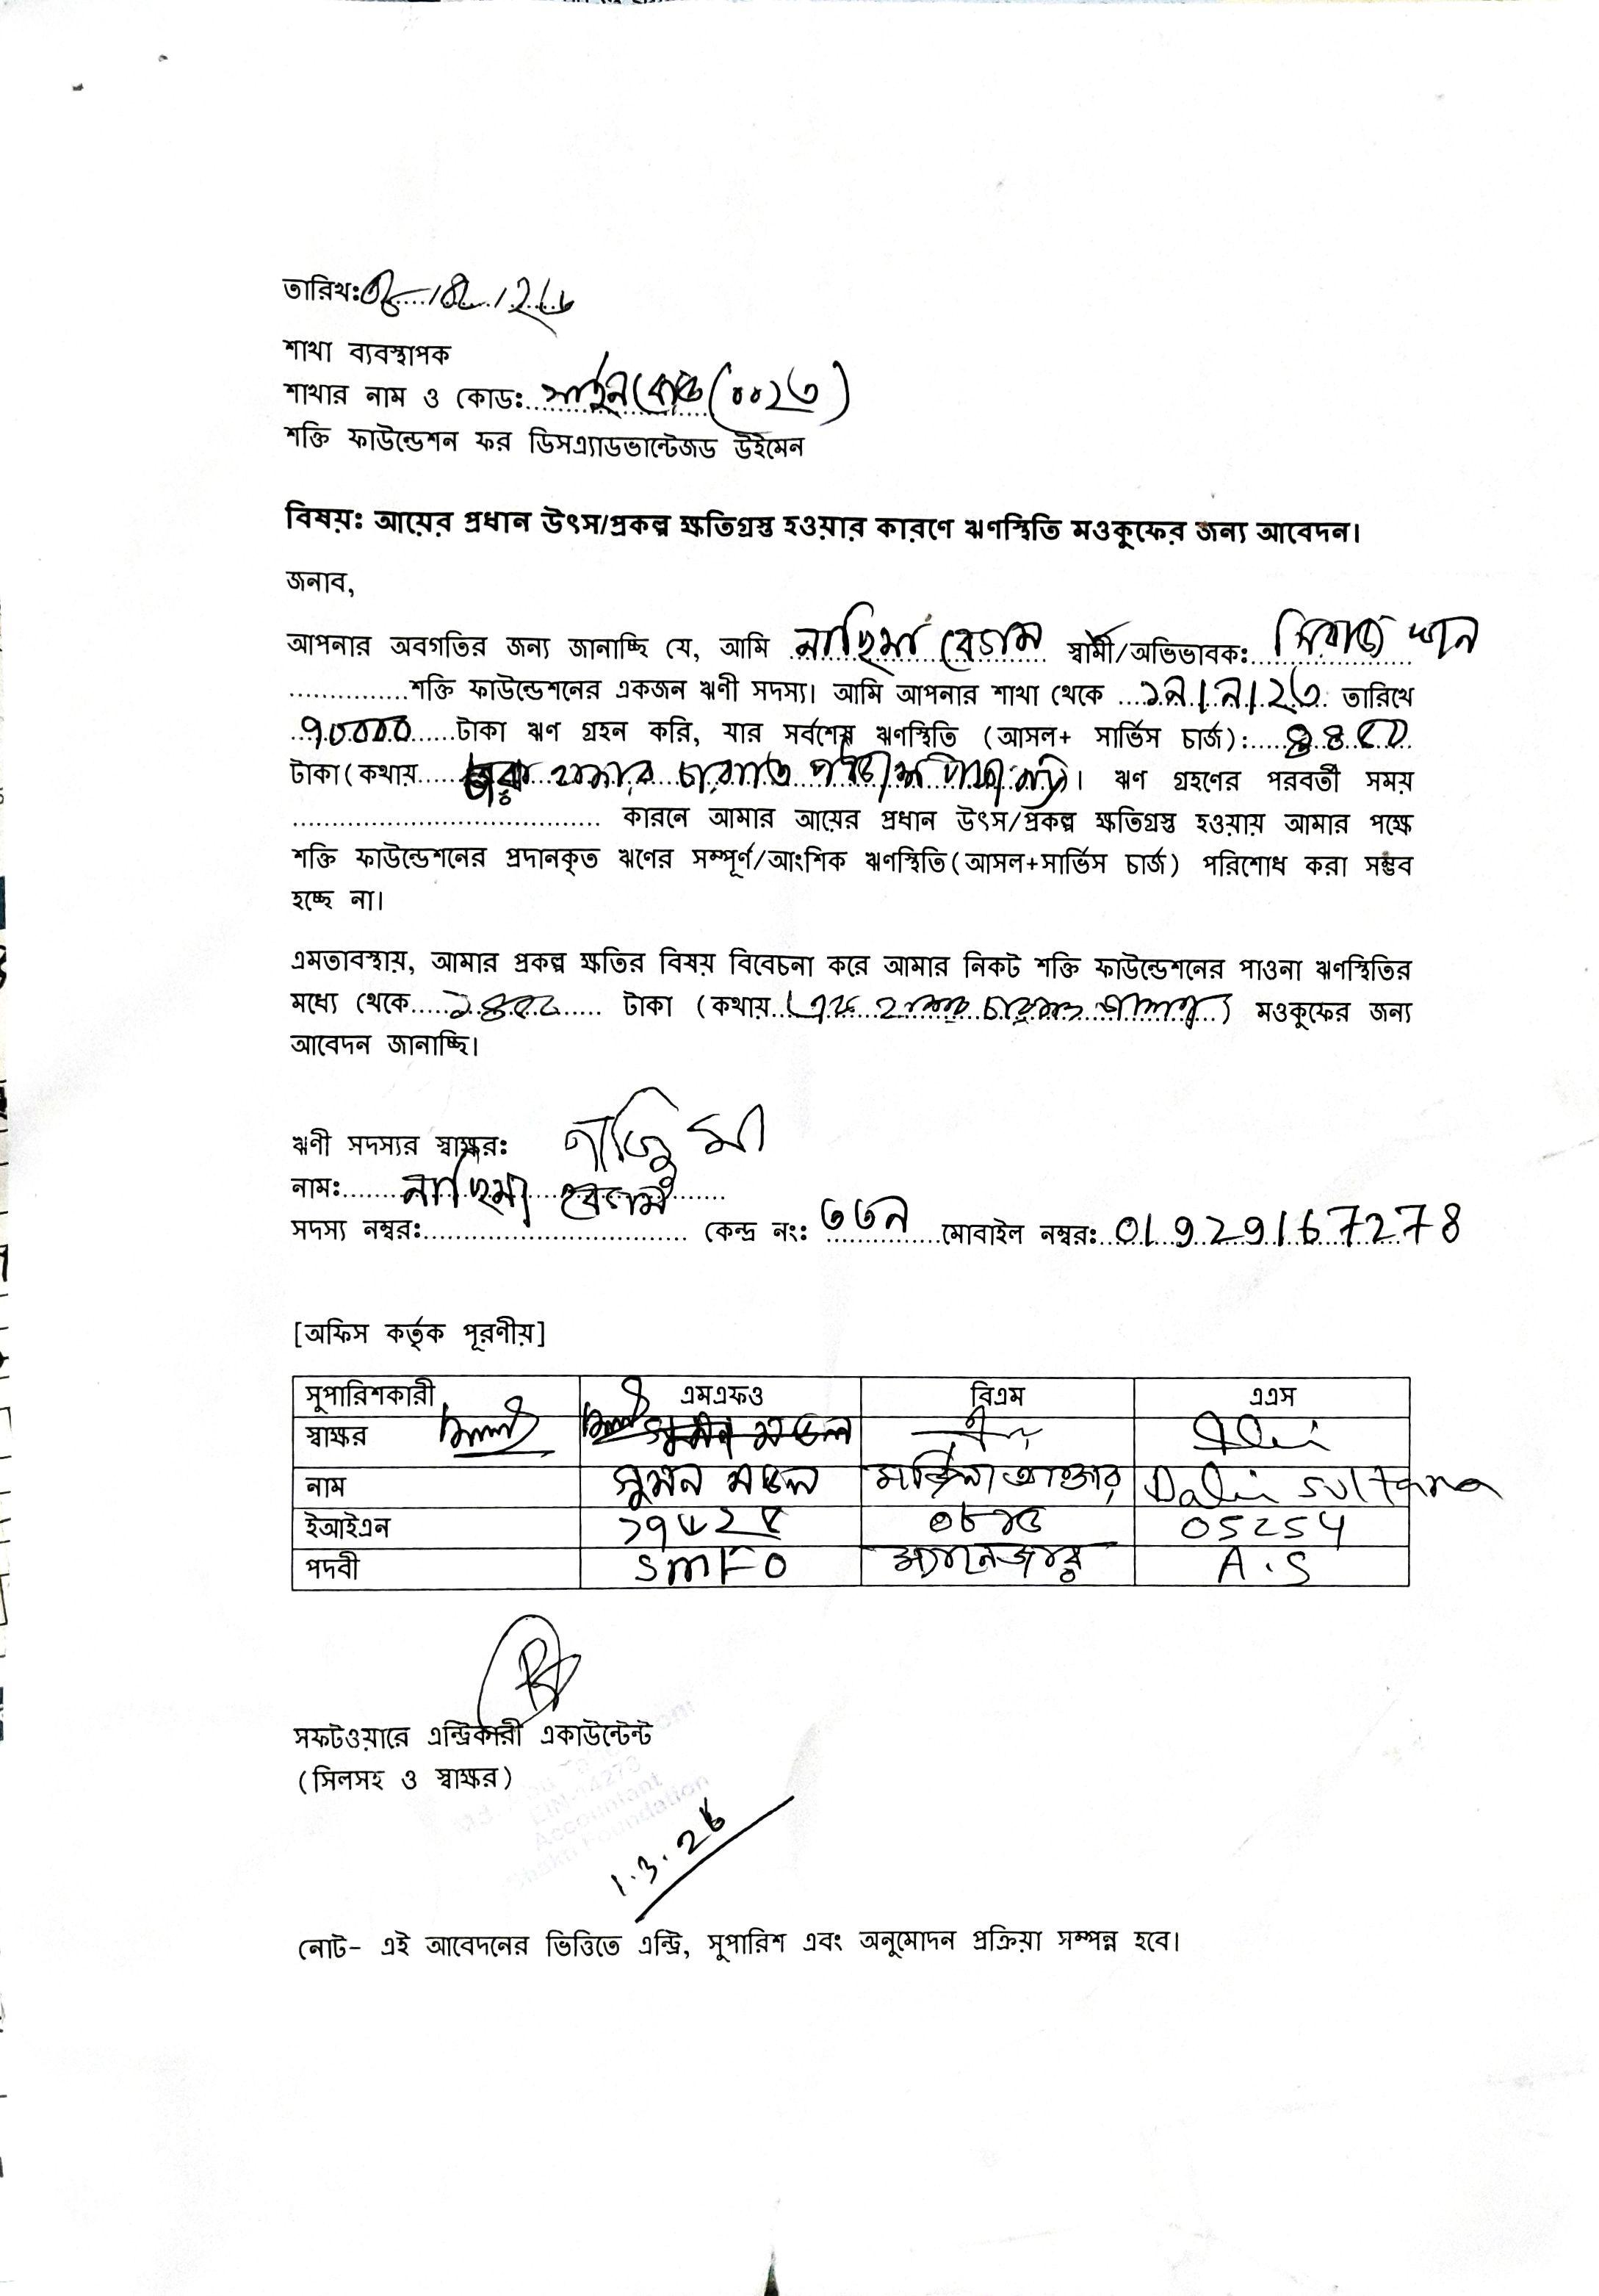 তারিখঃ
শাখা ব্যবস্থাপক
শাখার নাম ও কোডঃ সাইনবোর্ড (০০২৩)
শক্তি ফাউন্ডেশন ফর ডিসএ্যাডভান্টেজড উইমেন
বিষয়ঃ আয়ের প্রধান উৎস/প্রকল্প ক্ষতিগ্রস্ত হওয়ার কারণে ঋণস্থিতি মওকুফের জন্য আবেদন।
জনাব,
আপনার অবগতির জন্য জানাচ্ছি যে, আমি নাছিমা বেগম স্বামী/অভিভাবকঃ সিরাজ খান
শক্তি ফাউন্ডেশনের একজন ঋণী সদস্য। আমি আপনার শাখা থেকে ১৯/৯/২৩ তারিখে
৭০০০০ টাকা ঋণ গ্রহন করি, যার সর্বশেষ ঋণস্থিতি (আসল+ সার্ভিস চার্জ):
টাকা (কথায় হাজার চারশত পঞ্চাশ টাকা মাত্র)। ঋণ গ্রহণের পরবর্তী সময়
কারনে আমার আয়ের প্রধান উৎস/প্রকল্প ক্ষতিগ্রস্ত হওয়ায় আমার পক্ষে
শক্তি ফাউন্ডেশনের প্রদানকৃত ঋণের সম্পূর্ণ/আংশিক ঋণস্থিতি(আসল+সার্ভিস চার্জ) পরিশোধ করা সম্ভব
হচ্ছে না।
এমতাবস্থায়, আমার প্রকল্প ক্ষতির বিষয় বিবেচনা করে আমার নিকট শক্তি ফাউন্ডেশনের পাওনা ঋণস্থিতির
মধ্যে থেকে টাকা (কথায় এক হাজার চারশত) মওকুফের জন্য
আবেদন জানাচ্ছি।
ঋণী সদস্যর স্বাক্ষরঃ নাজিমা
নামঃ নাছিমা বেগম
সদস্য নম্বরঃ কেন্দ্র নংঃ ৩৩৯ মোবাইল নম্বরঃ 01929167278
[অফিস কর্তৃক পূরণীয়]
সুপারিশকারী এমএফও বিএম এএস
স্বাক্ষর সুমন মন্ডল
নাম সুমন মন্ডল আক্তার Dalia Sultana
ইআইএন 05254
পদবী SMFO ম্যানেজার A.S
সফটওয়ারে এন্ট্রিকারী একাউন্টেন্ট
(সিলসহ ও স্বাক্ষর)
EIN-14273
Accountant
Shakti Foundation
1.3.26
নোট- এই আবেদনের ভিত্তিতে এন্ট্রি, সুপারিশ এবং অনুমোদন প্রক্রিয়া সম্পন্ন হবে।